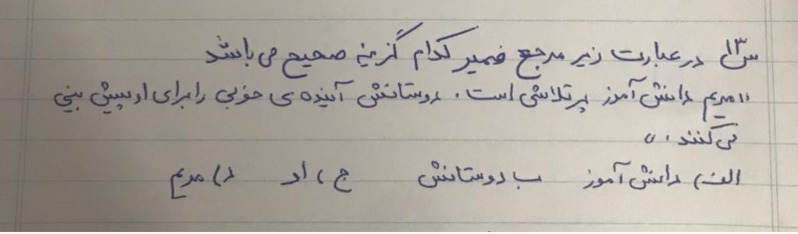 س۱۳) در عبارت زیر مرجع ضمیر کدام گزینه صحیح می باشد
"مریم دانش آموز پرتلاشی است. دوستانش آینده ی خوبی را برای او پیش بینی
می کنند."
الف) دانش آموز ب دوستانش ج) او د) مریم